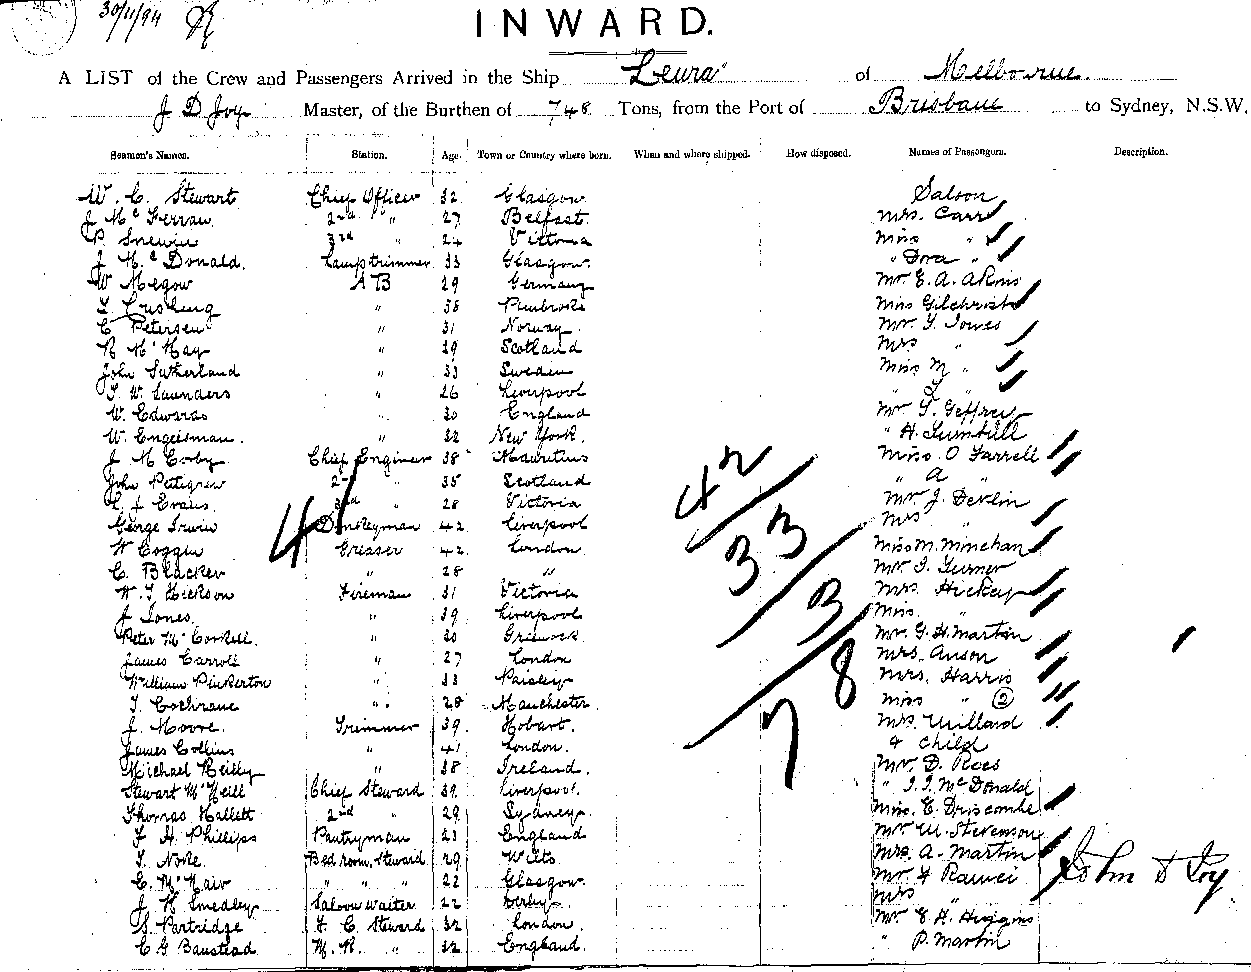 30/11/94
INWARD.
A LIST of the Crew and Passengers Arrived in the Ship "Leura" of Melbourne.
J D Joy Master, of the Burthen of 748 Tons, from the Port of Brisbane to Sydney, N.S.W.
Seamen's Names. Station. Age. Town or Country where born. When and where shipped. How disposed. Names of Passengers. Description.
W. C. Stewart Chief Officer 32 Glasgow Saloon
J McFerran 2nd " 27 Belfast Mrs. Carr
P. 3rd " 24 Victoria Miss "
J McDonald. Lamptrimmer 33 Glasgow. " Dora "
W Megow AB 29 Germany Mr E. A. Akins
" 38 Pembroke Miss Gilchrist
C Petersen " 31 Norway. Mr. Jones
R McKay " 29 Scotland Mrs "
John Sutherland " 33 Sweden Miss M "
T. W. Saunders " 26 Liverpool " "
W. Edwards " 30 England Mr Geffrey
W. Engelsman. " 32 New York. " H. Turnbull
J M Corby Chief Engineer 38 Mauritius Miss O'Farrell
John Pettigrew 2nd " 35 Scotland " A "
J Evans 3rd " 28 Victoria Mr J. Devlin
George Irwin Donkeyman 42 Liverpool Mrs "
W Coggin Greaser 42 London Miss M. Minehan
C. Blacker " 28 " Mr Turner
Hickson Fireman 31 Victoria Mrs. Hickey
J Jones. " 39 Liverpool Miss. "
Peter McCorkell. " 30 Greenock Mr G. H. Martin
James Carroll " 27 London Mrs. Anson
William Pinkerton " 33 Paisley Mrs. Harris
T. Cochrane " 28 Manchester Miss " 2
J. Moore. Trimmer 39 Hobart. Mrs Willard
James Collins " 41 London. & child
Michael Reilly " 38 Ireland. Mr. D. Rees
Stewart McNeill Chief Steward 39 Liverpool. " McDonald
Thomas Hallett 2nd " 29 Sydney. Miss. E. Driscombe
F H. Phillips Pantryman 21 England Mr W. Stevenson
T. Noke. Bed room Steward 29 Wilts Mrs. A. Martin
C. McNair " " " 22 Glasgow. Mr
J H Smedley Saloon Waiter 22 Derby. Mrs "
S. Partridge F. C. Steward 32 London Mr E. H. Huggins
C G Banstead M. R. " 32 England. " P. Martin
41
42
33
3
78
John D Joy